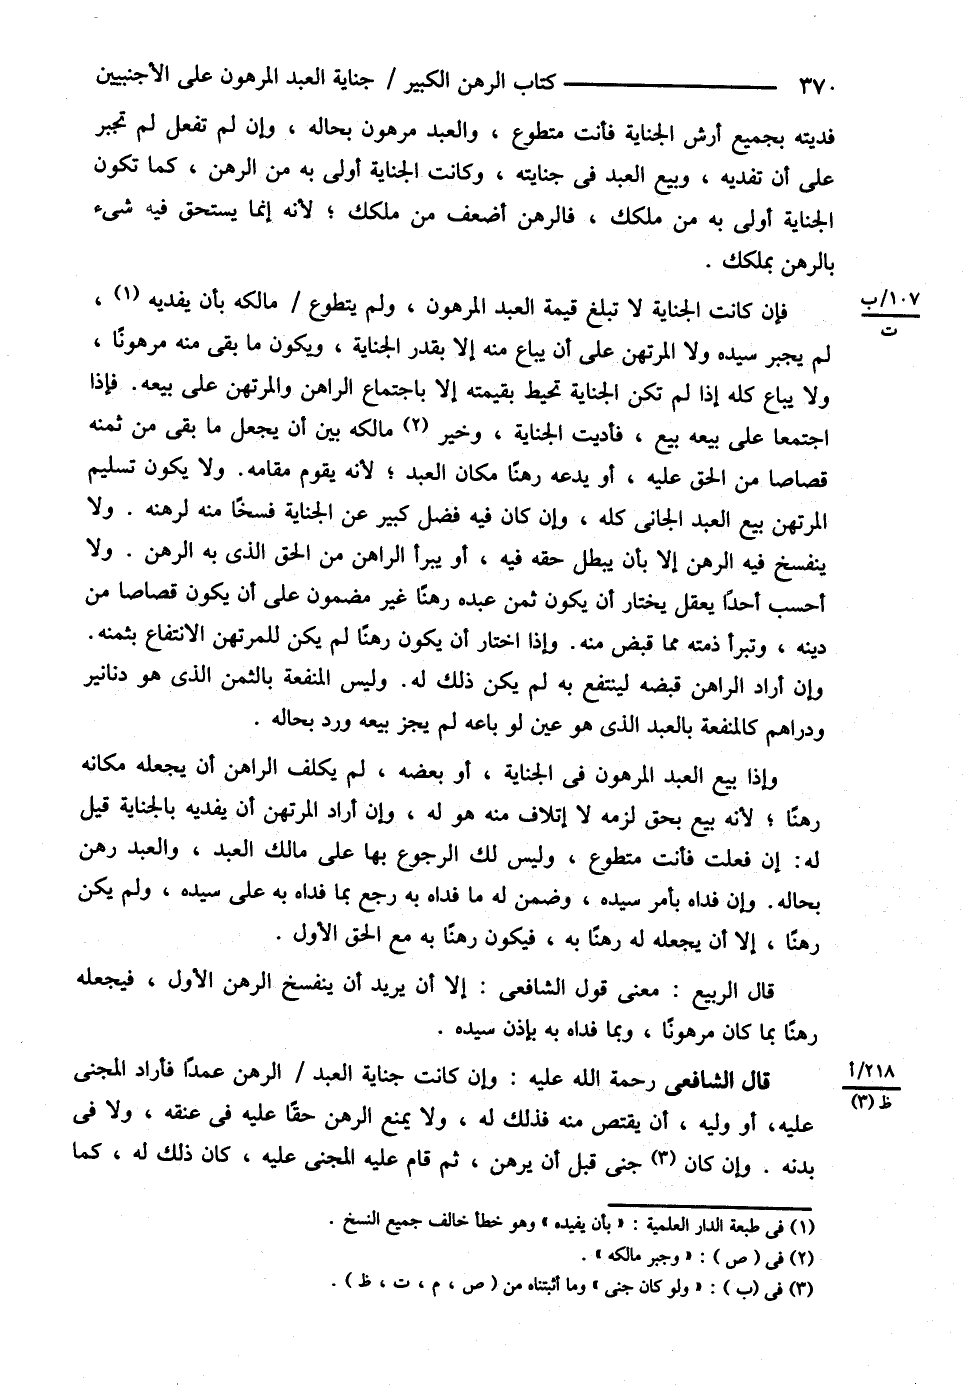 ٣٧٠ ــــــــــــــــــــ كتاب الرهن الكبير / جناية العبد المرهون على الأجنبيين
فديته بجميع أرش الجناية فأنت متطوع ، والعبد مرهون بحاله ، وإن لم تفعل لم تجبر
على أن تفديه ، وبيع العبد فى جنايته ، وكانت الجناية أولى به من الرهن ، كما تكون
الجناية أولى به من ملكك ، فالرهن أضعف من ملكك ؛ لأنه إنما يستحق فيه شىء
بالرهن بملكك .
١٠٧/ب
ت
فإن كانت الجناية لا تبلغ قيمة العبد المرهون ، ولم يتطوع / مالكه بأن يفديه (١) ،
لم يجبر سيده ولا المرتهن على أن يباع منه إلا بقدر الجناية ، ويكون ما بقى منه مرهونًا ،
ولا يباع كله إذا لم تكن الجناية تحيط بقيمته إلا باجتماع الراهن والمرتهن على بيعه. فإذا
اجتمعا على بيعه بيع ، فأديت الجناية ، وخير (٢) مالكه بين أن يجعل ما بقى من ثمنه
قصاصا من الحق عليه ، أو يدعه رهنًا مكان العبد ؛ لأنه يقوم مقامه. ولا يكون تسليم
المرتهن بيع العبد الجانى كله ، وإن كان فيه فضل كبير عن الجناية فسخًا منه لرهنه . ولا
ينفسخ فيه الرهن إلا بأن يبطل حقه فيه ، أو يبرأ الراهن من الحق الذى به الرهن . ولا
أحسب أحدًا يعقل يختار أن يكون ثمن عبده رهنًا غير مضمون على أن يكون قصاصا من
دينه ، وتبرأ ذمته مما قبض منه. وإذا اختار أن يكون رهنًا لم يكن للمرتهن الانتفاع بثمنه.
وإن أراد الراهن قبضه لينتفع به لم يكن ذلك له. وليس المنفعة بالثمن الذى هو دنانير
ودراهم كالمنفعة بالعبد الذى هو عين لو باعه لم يجز بيعه ورد بحاله .
وإذا بيع العبد المرهون فى الجناية ، أو بعضه ، لم يكلف الراهن أن يجعله مكانه
رهنًا ؛ لأنه بيع بحق لزمه لا إتلاف منه هو له ، وإن أراد المرتهن أن يفديه بالجناية قيل
له: إن فعلت فأنت متطوع ، وليس لك الرجوع بها على مالك العبد ، والعبد رهن
بحاله. وإن فداه بأمر سيده ، وضمن له ما فداه به رجع بما فداه به على سيده ، ولم يكن
رهنًا ، إلا أن يجعله له رهنًا به ، فيكون رهنًا به مع الحق الأول .
قال الربيع : معنى قول الشافعى : إلا أن يريد أن ينفسخ الرهن الأول ، فيجعله
رهنًا بما كان مرهونًا ، وبما فداه به بإذن سيده .
٢١٨/أ
ظ (٣)
قال الشافعى رحمة الله عليه : وإن كانت جناية العبد / الرهن عمدًا فأراد المجنى
عليه، أو وليه ، أن يقتص منه فذلك له ، ولا يمنع الرهن حقًا عليه فى عنقه ، ولا فى
بدنه . وإن كان (٣) جنى قبل أن يرهن ، ثم قام عليه المجنى عليه ، كان ذلك له ، كما
(١) فى طبعة الدار العلمية : « بأن يفيده » وهو خطأ خالف جميع النسخ .
(٢) فى ( ص ) : « وجبر مالكه » .
(٣) فى (ب ) : « ولو كان جنى » وما أثبتناه من ( ص ، م ، ت ، ظ ) .